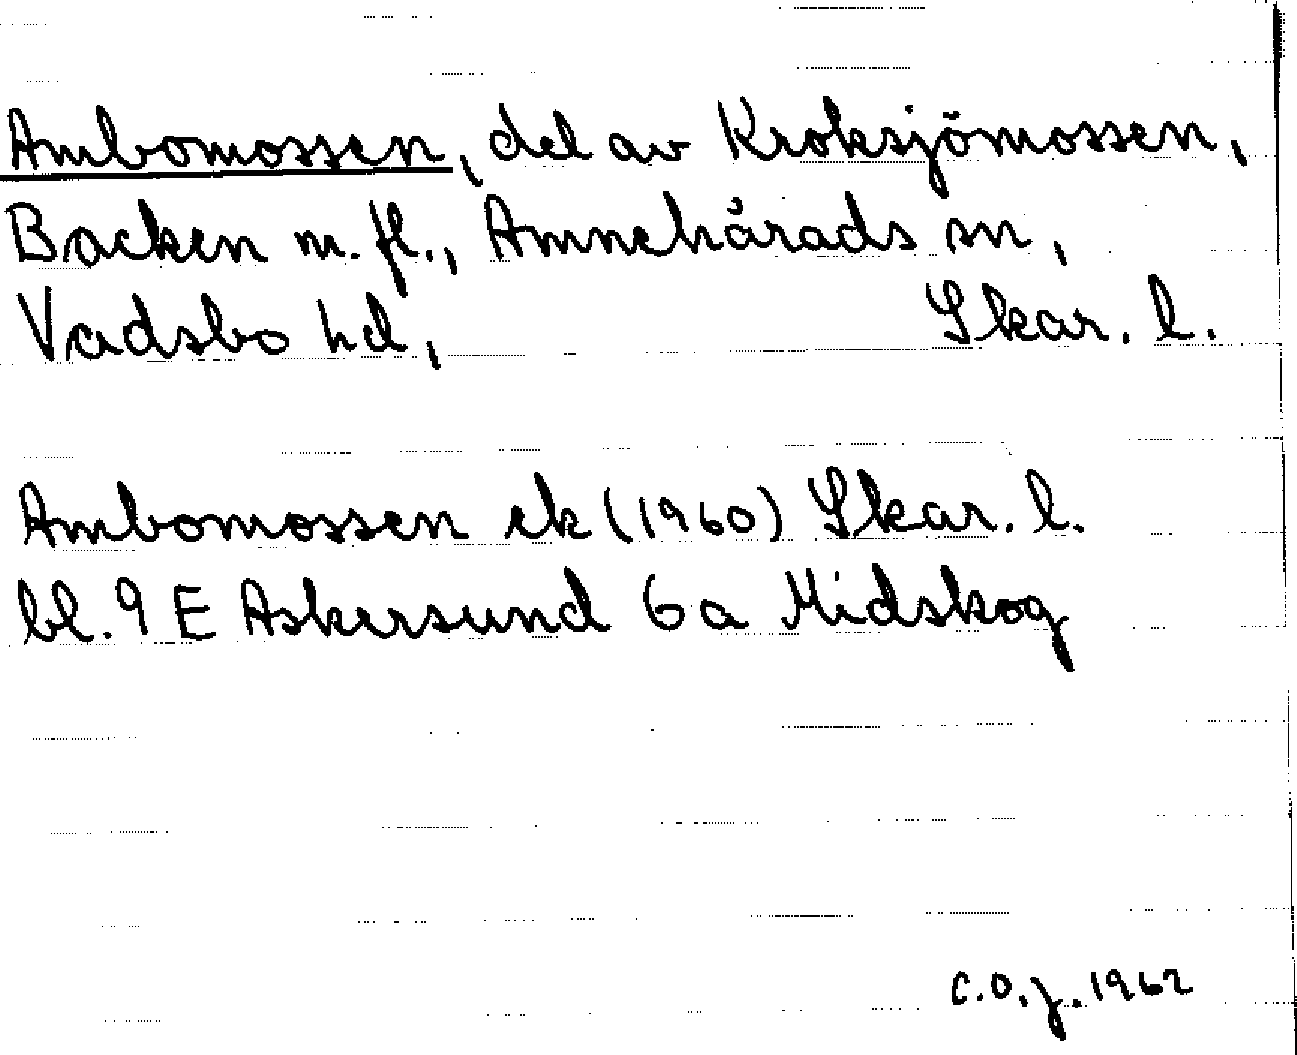 Ambomossen, del av Kroksjömossen,
Backen m. fl., Amnehårads sn,
Vadsbo hd, Skar. l.
Ambomossen ek (1960) Skar. l.
bl. 9 E Askersund 6 a Midskog
C.O.J. 1962